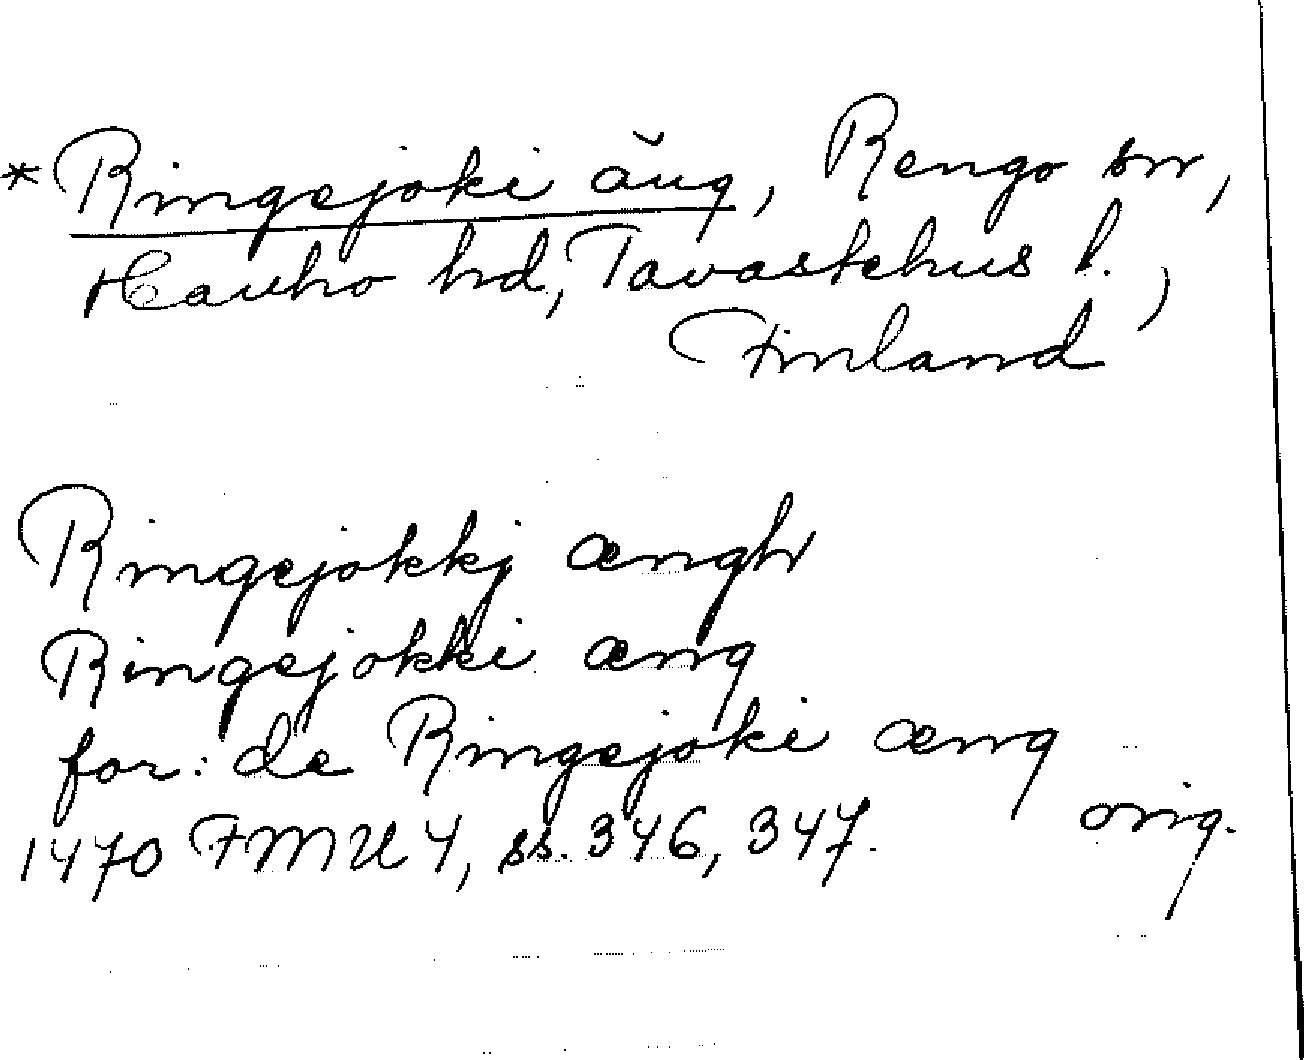 *Ringejoki äng, Rengo sn,
Hauho hd, Tavastehus l.,
Finland
Ringejokkj ængh
Ringejokki æng
for: de Ringejoki æng
orig.
1470 FMU 4, ss. 346, 347.